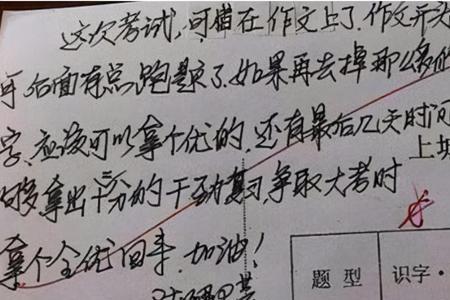 这次考试,可惜在作文上了.作文开头
可后面有点跑题了.如果再去掉那么多的
字,应该可以拿个优的.还有最后几天时间
上
够拿出十二分的干劲复习争取大考时
拿个全优回来.加油!
题 型 识字·